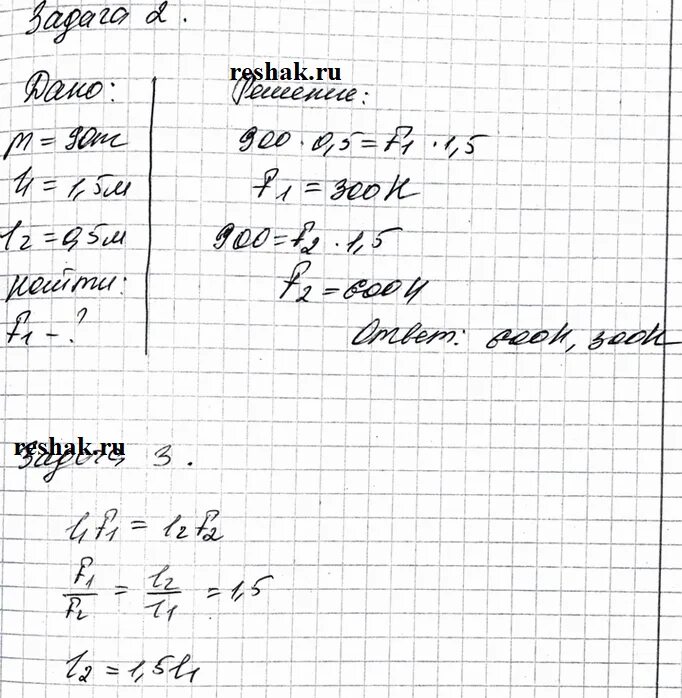 Задача 2.
reshak.ru
Дано:
m = 90кг
l1 = 1,5м
l2 = 0,5м
Найти:
F1 - ?
Решение:
900 · 0,5 = F1 · 1,5
F1 = 300Н
900 = F2 · 1,5
F2 = 600Н
Ответ: 600Н, 300Н
reshak.ru
Задача 3.
l1F1 = l2F2
F1/F2 = l2/l1 = 1,5
l2 = 1,5l1